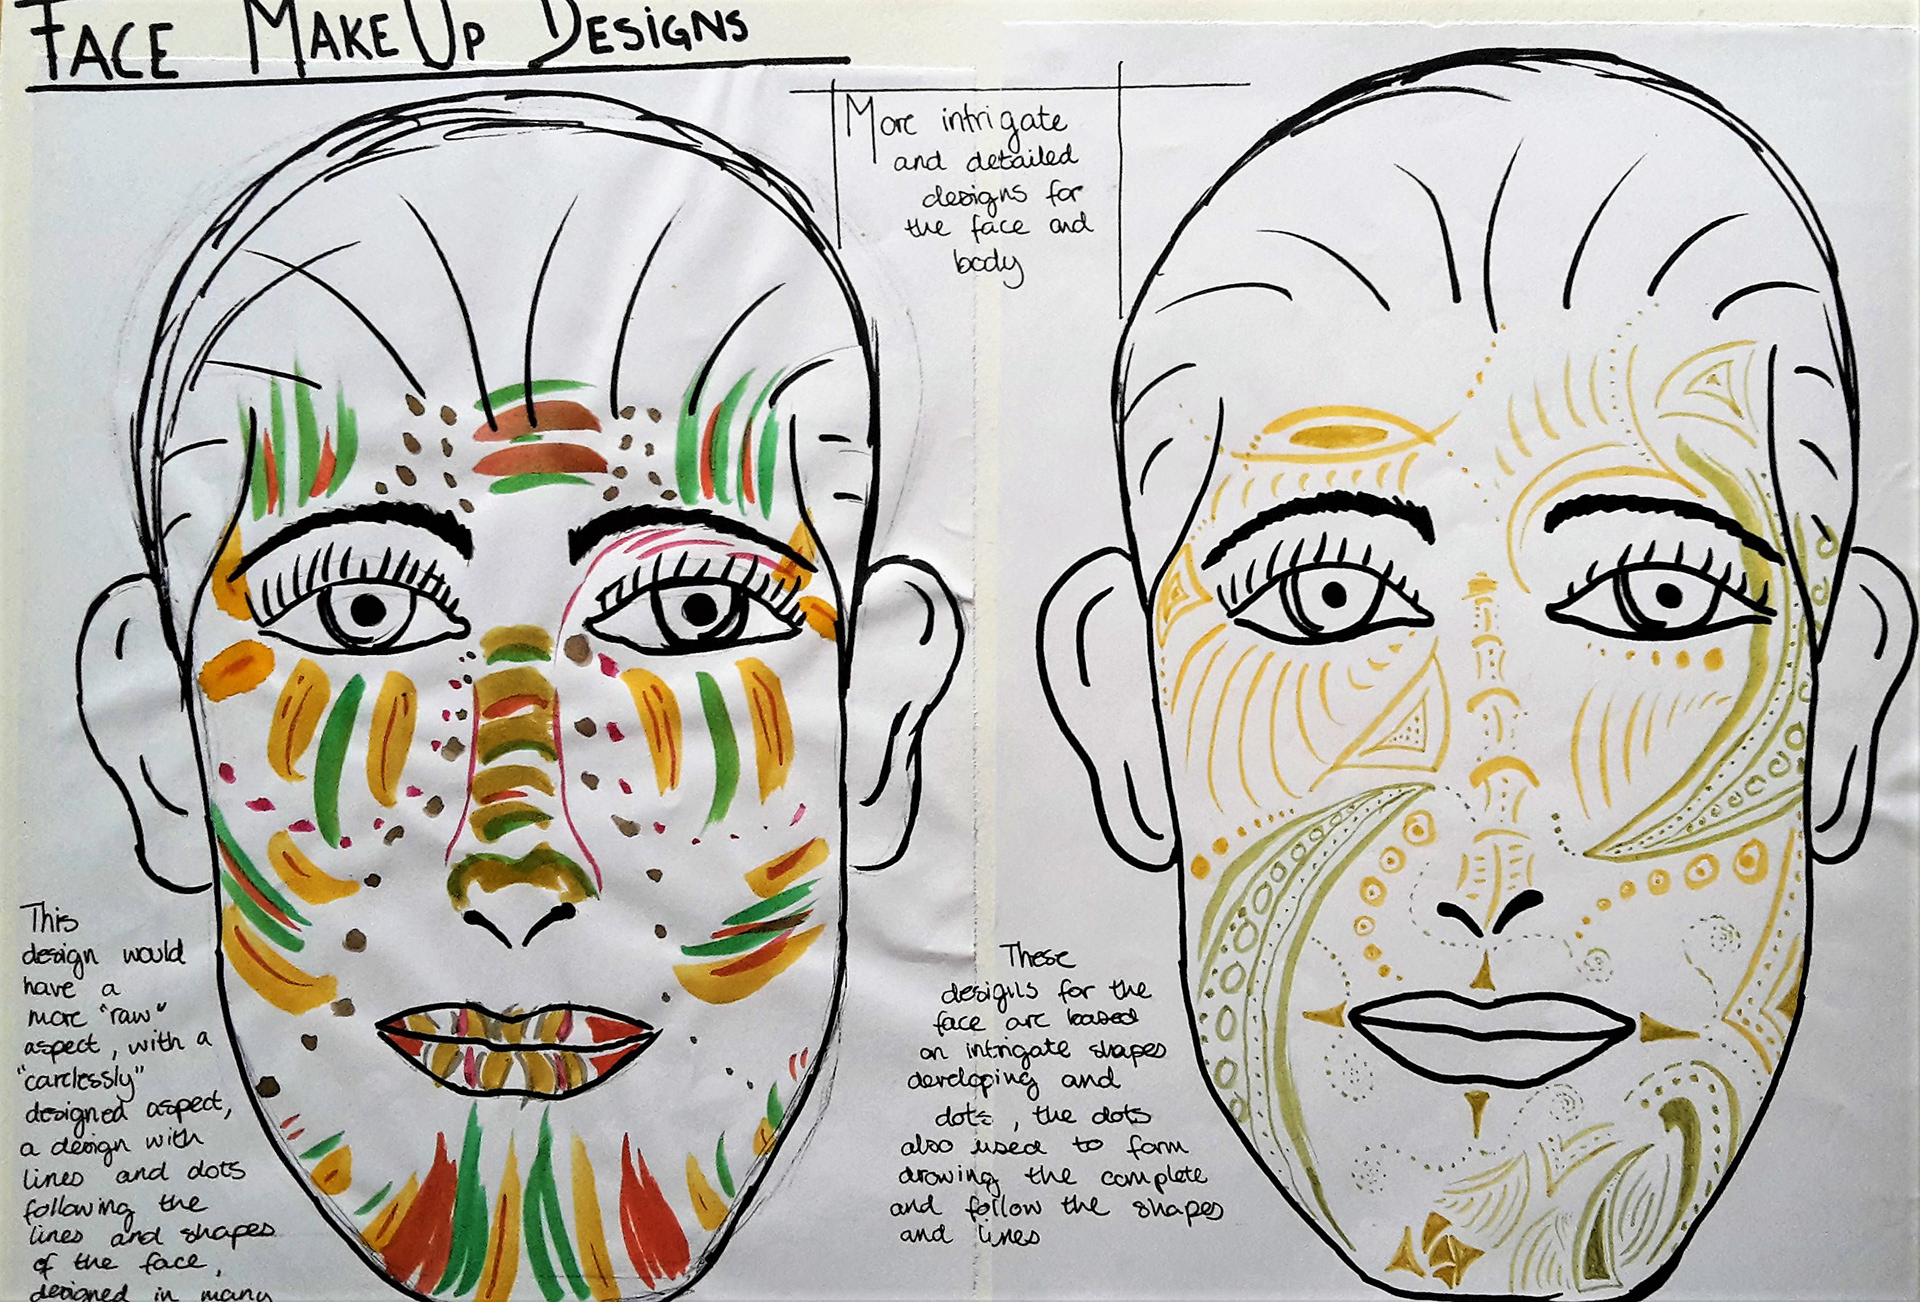 FACE MAKE UP DESIGNS
More intrigate
and detailed
designs for
the face and
body
This
design would
have a
more "raw"
aspect, with a
"carlessly"
designed aspect,
a design with
lines and dots
following the
lines and shapes
of the face,
designed in many
These
designs for the
face are based
on intrigate shapes
developing and
dots, the dots
also used to form
drowing the complete
and follow the shapes
and lines